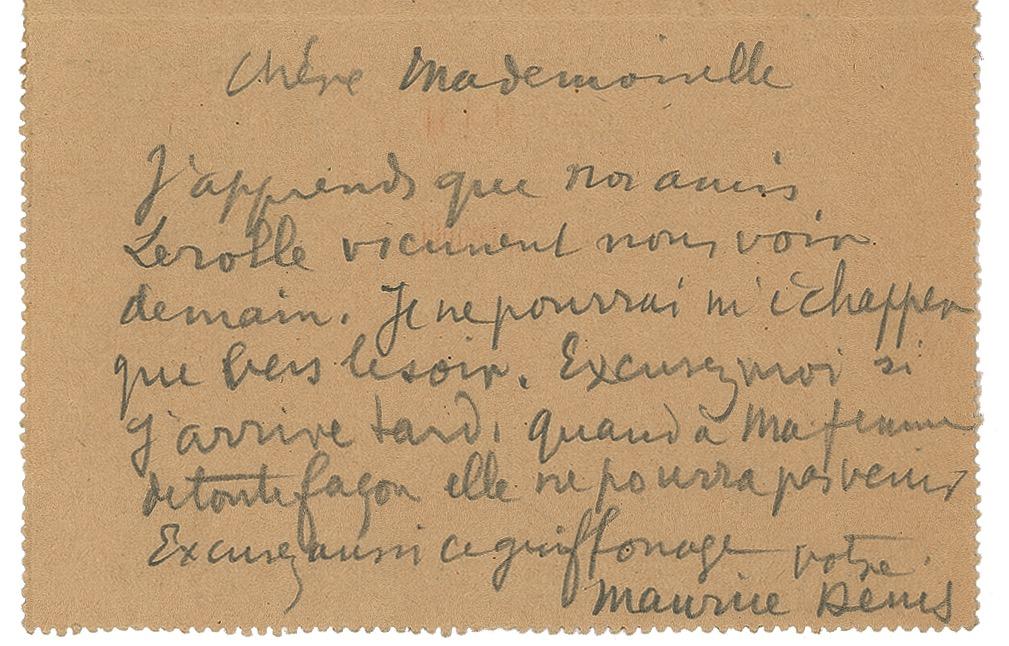 Chère Mademoiselle
J'apprends que nos amis
Lerolle viennent nous voir
demain. Je ne pourrai m'échapper
que vers le soir. Excusez moi si
j'arrive tard. quand à ma femme
de toute façon elle ne pourra pas venir
Excusez aussi ce griffonage votre
Maurice Denis